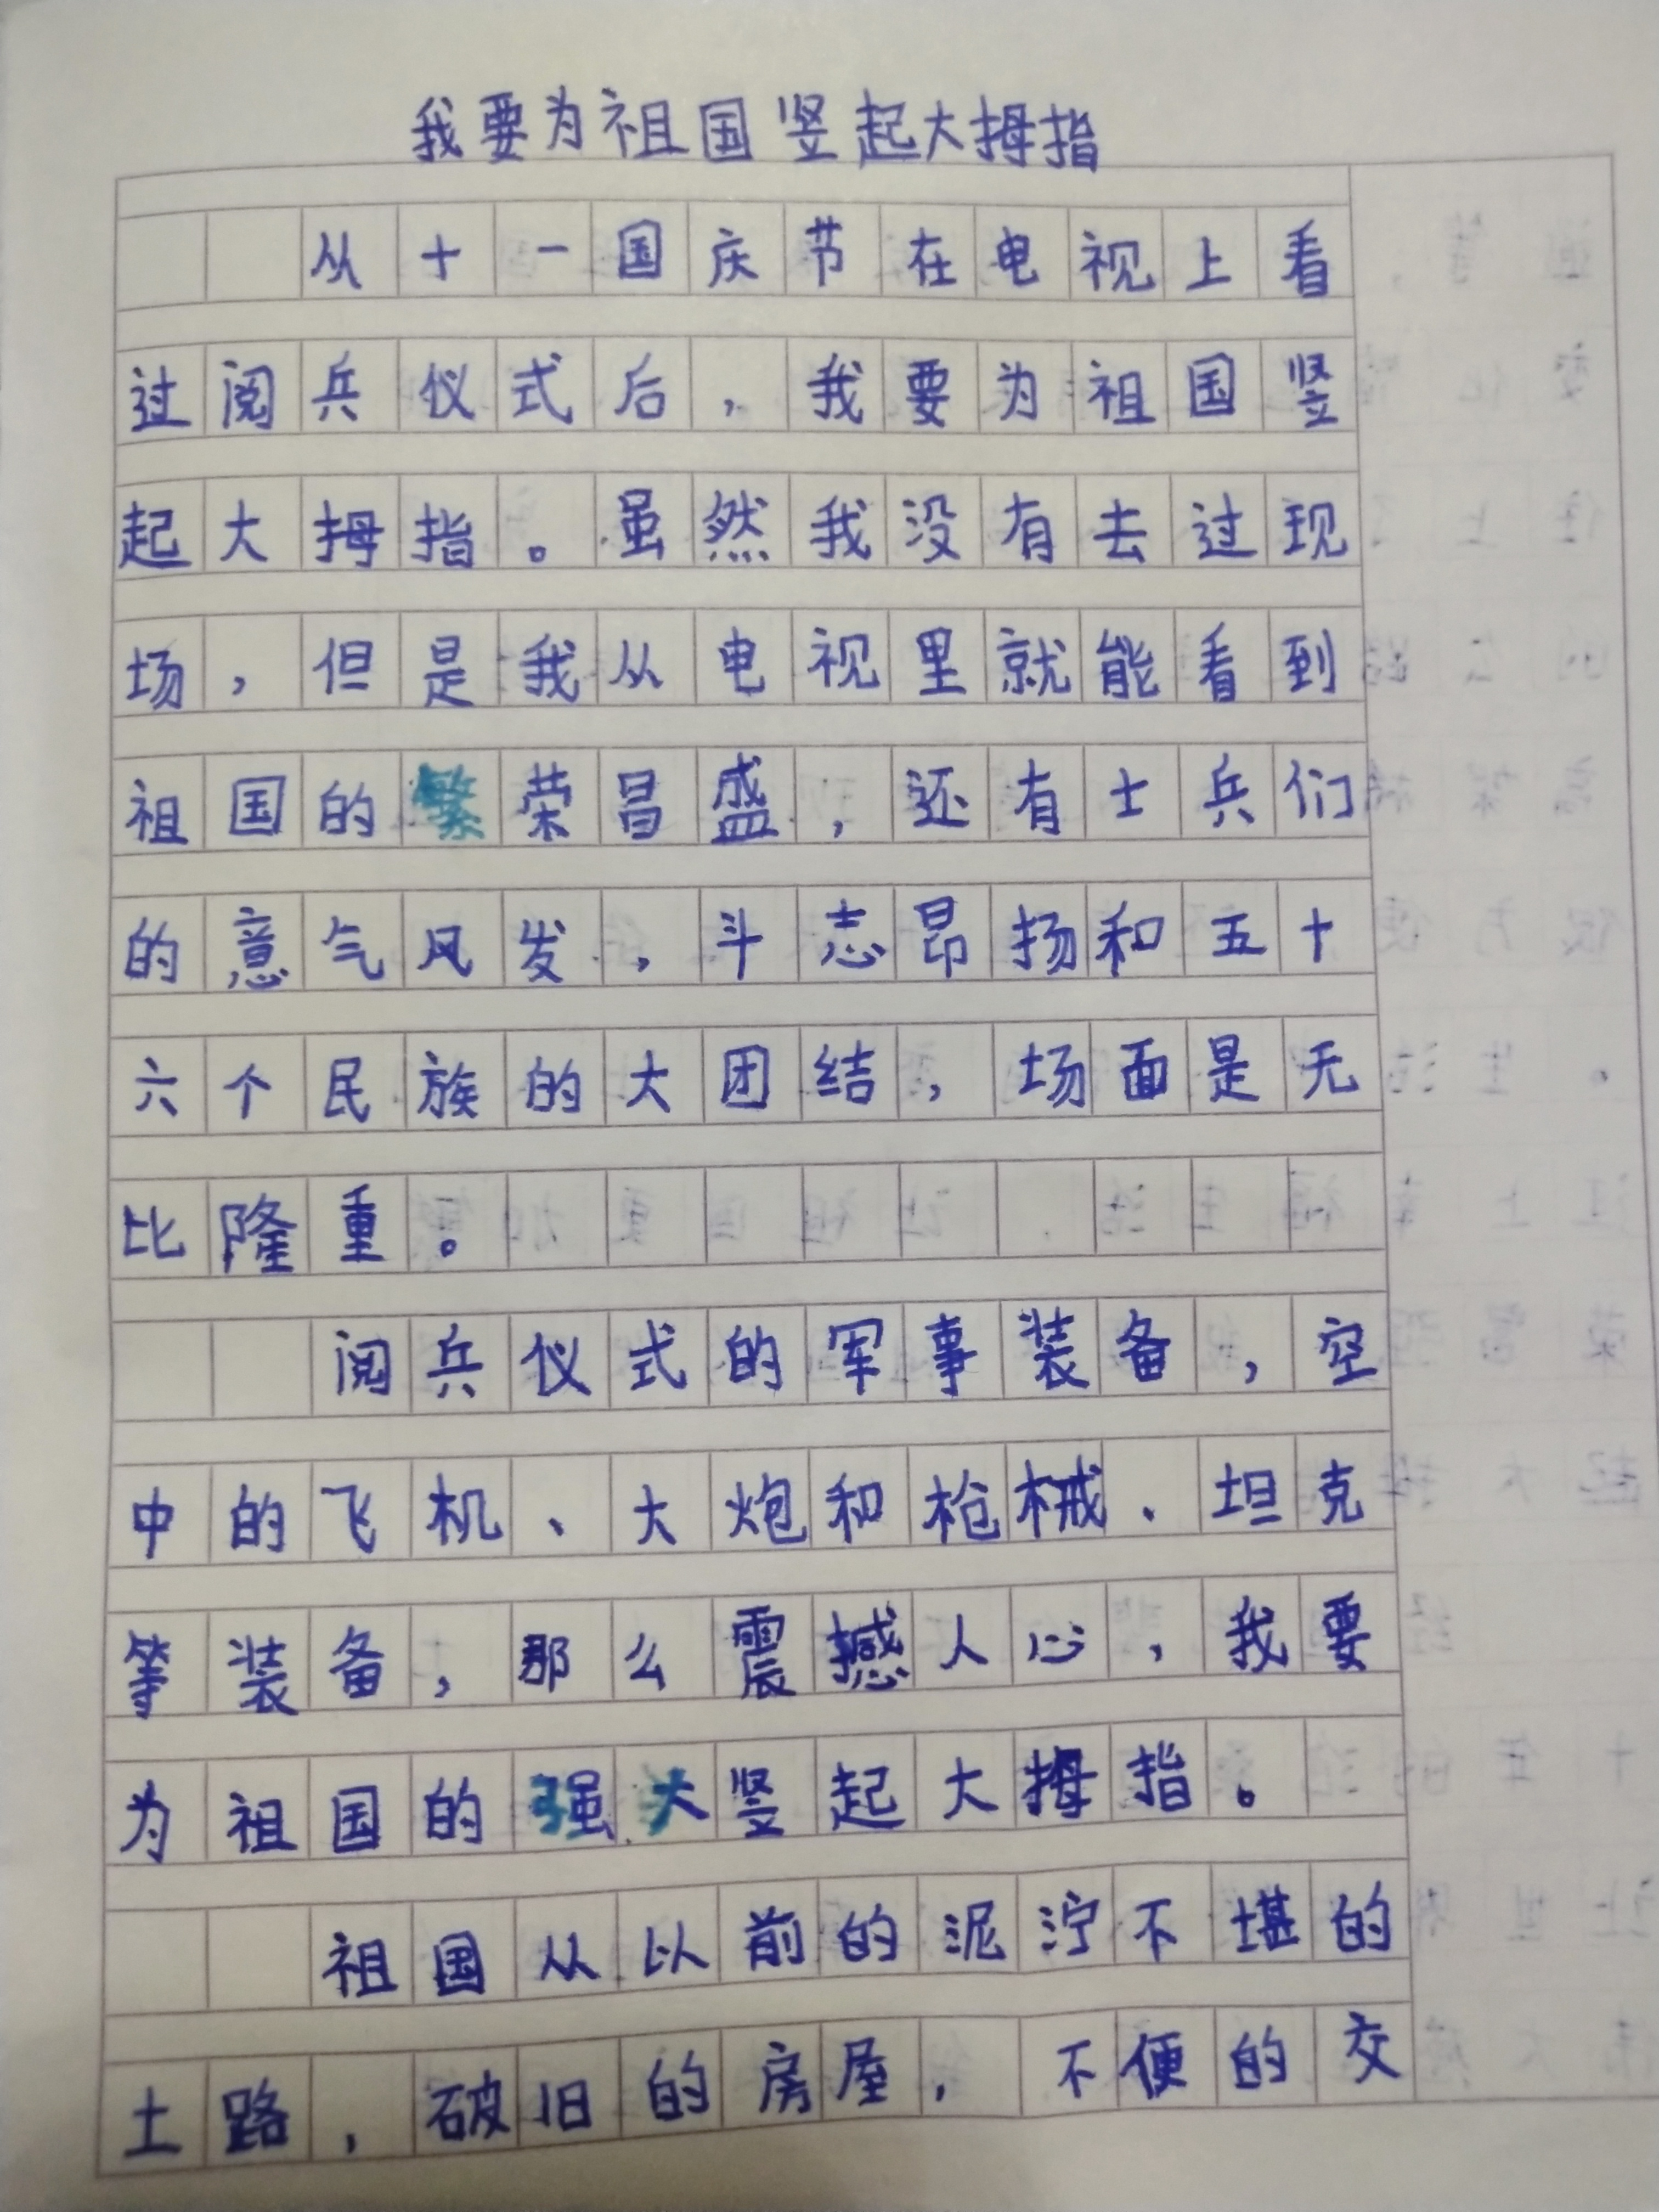 我要为祖国竖起大拇指
从十一国庆节在电视上看
过阅兵仪式后，我要为祖国竖
起大拇指。虽然我没有去过现
场，但是我从电视里就能看到
祖国的繁荣昌盛，还有士兵们
的意气风发，斗志昂扬和五十
六个民族的大团结，场面是无
比隆重。
阅兵仪式的军事装备，空
中的飞机、大炮和枪械、坦克
等装备，那么震撼人心，我要
为祖国的强大竖起大拇指。
祖国从以前的泥泞不堪的
土路，破旧的房屋，不便的交